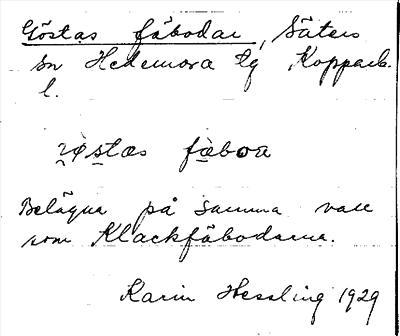 Göstas fäbodar, Säters
sn Hedemora tg Kopparb.
l.
jøstas fæboa
Belägna på samma vall
som Klackfäbodarna.
Karin Hessling 1929